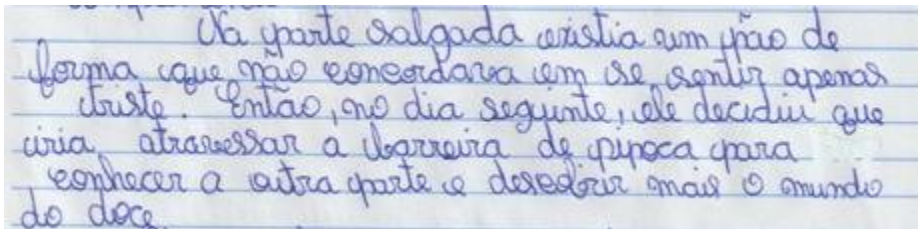 Na parte salgada existia um pão de
forma que não concordava em se sentir apenas
triste. Então, no dia seguinte, ele decidiu que
iria atravessar a barreira de pipoca para
conhecer a outra parte e descobrir mais o mundo
do doce